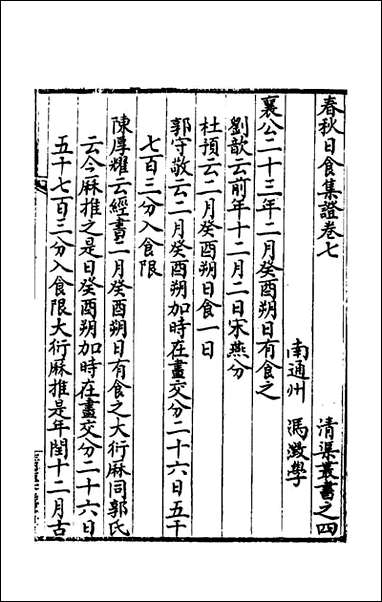 春秋日食集證卷七 清渠叢書之四
南通州 馮澂學
襄公二十三年二月癸酉朔日有食之
劉歆云前年十二月二日宋燕分
杜預云二月癸酉朔日食一日
郭守敬云二月癸酉朔加時在晝交分二十六日五千
七百三分入食限
陳厚耀云經書二月癸酉朔日有食之大衍厤同郭氏
云今厤推之是日癸酉朔加時在晝交分二十六日
五千七百三分入食限大衍厤推是年閏十二月古